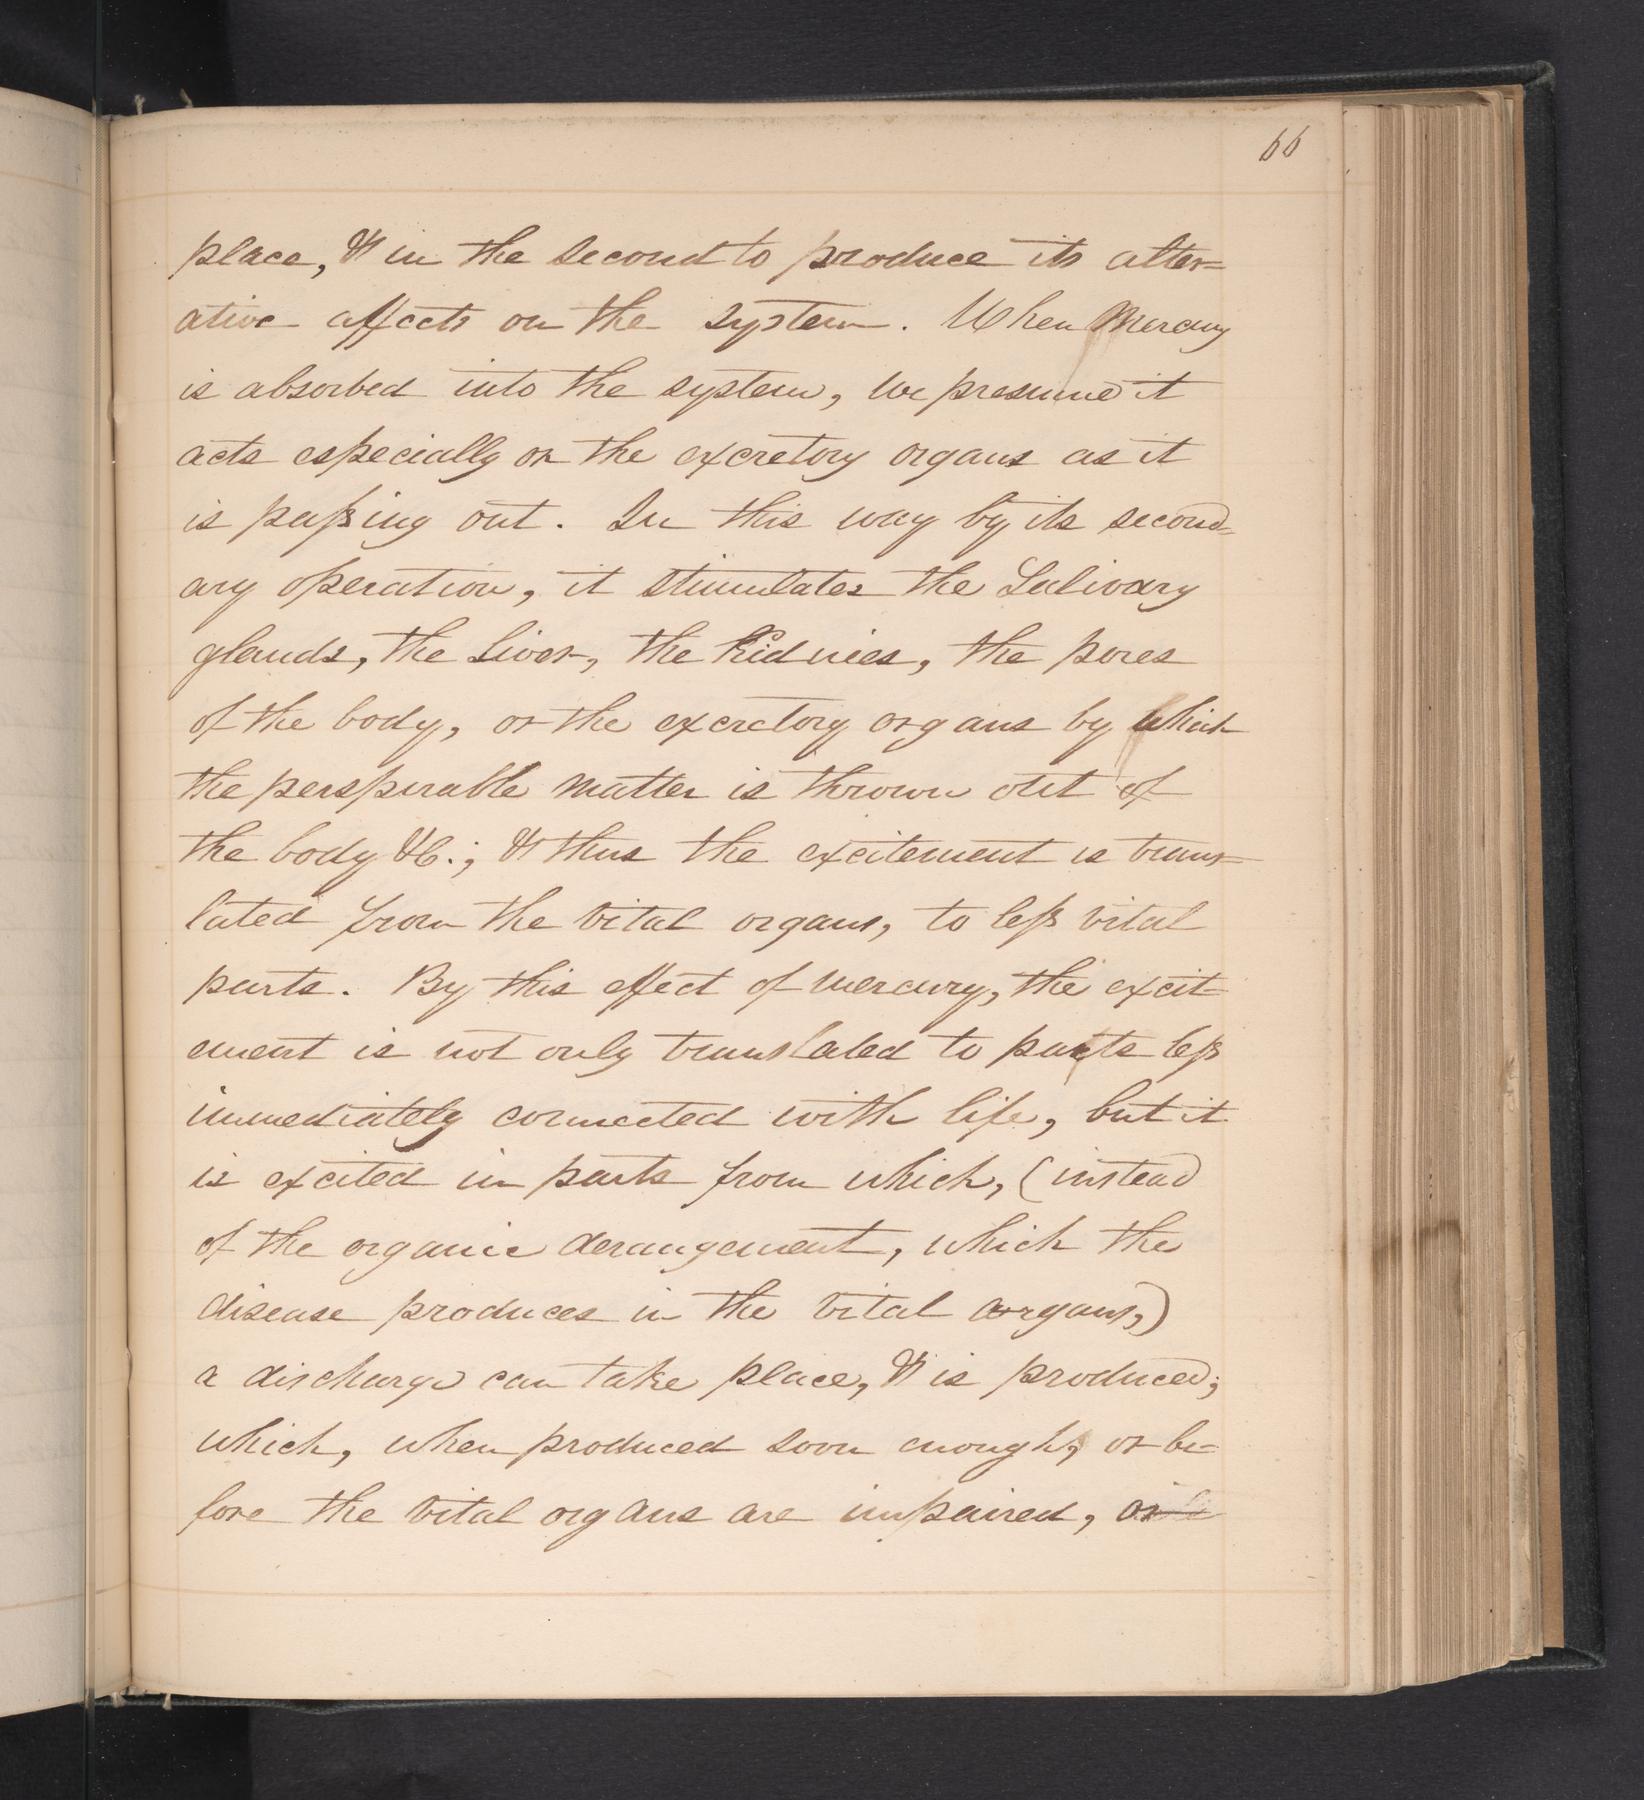 66
place, & in the second to produce its alter=
ative affects on the system. When Mercury
is absorbed into the system, we presume it
acts especially on the excretory organs as it
is paſsing out. In this way by its second=
ary operation, it stimulates the Salivary
glands, the liver, the Kidnies, the pores
of the body, or the excretory organs by which
the perspirable matter is thrown out of
the body &c.; & thus the excitement is trans=
lated from the vital organs, to leſs vital
parts. By this effect of mercury, the excit=
ement is not only translated to parts leſs
immediately connected with life, but it
is excited in parts from which, (instead
of the organic derangement, which the
disease produces in the vital organs,)
a discharge can take place, & is produced;
which, when produced soon enough, or be=
fore the vital organs are impaired,